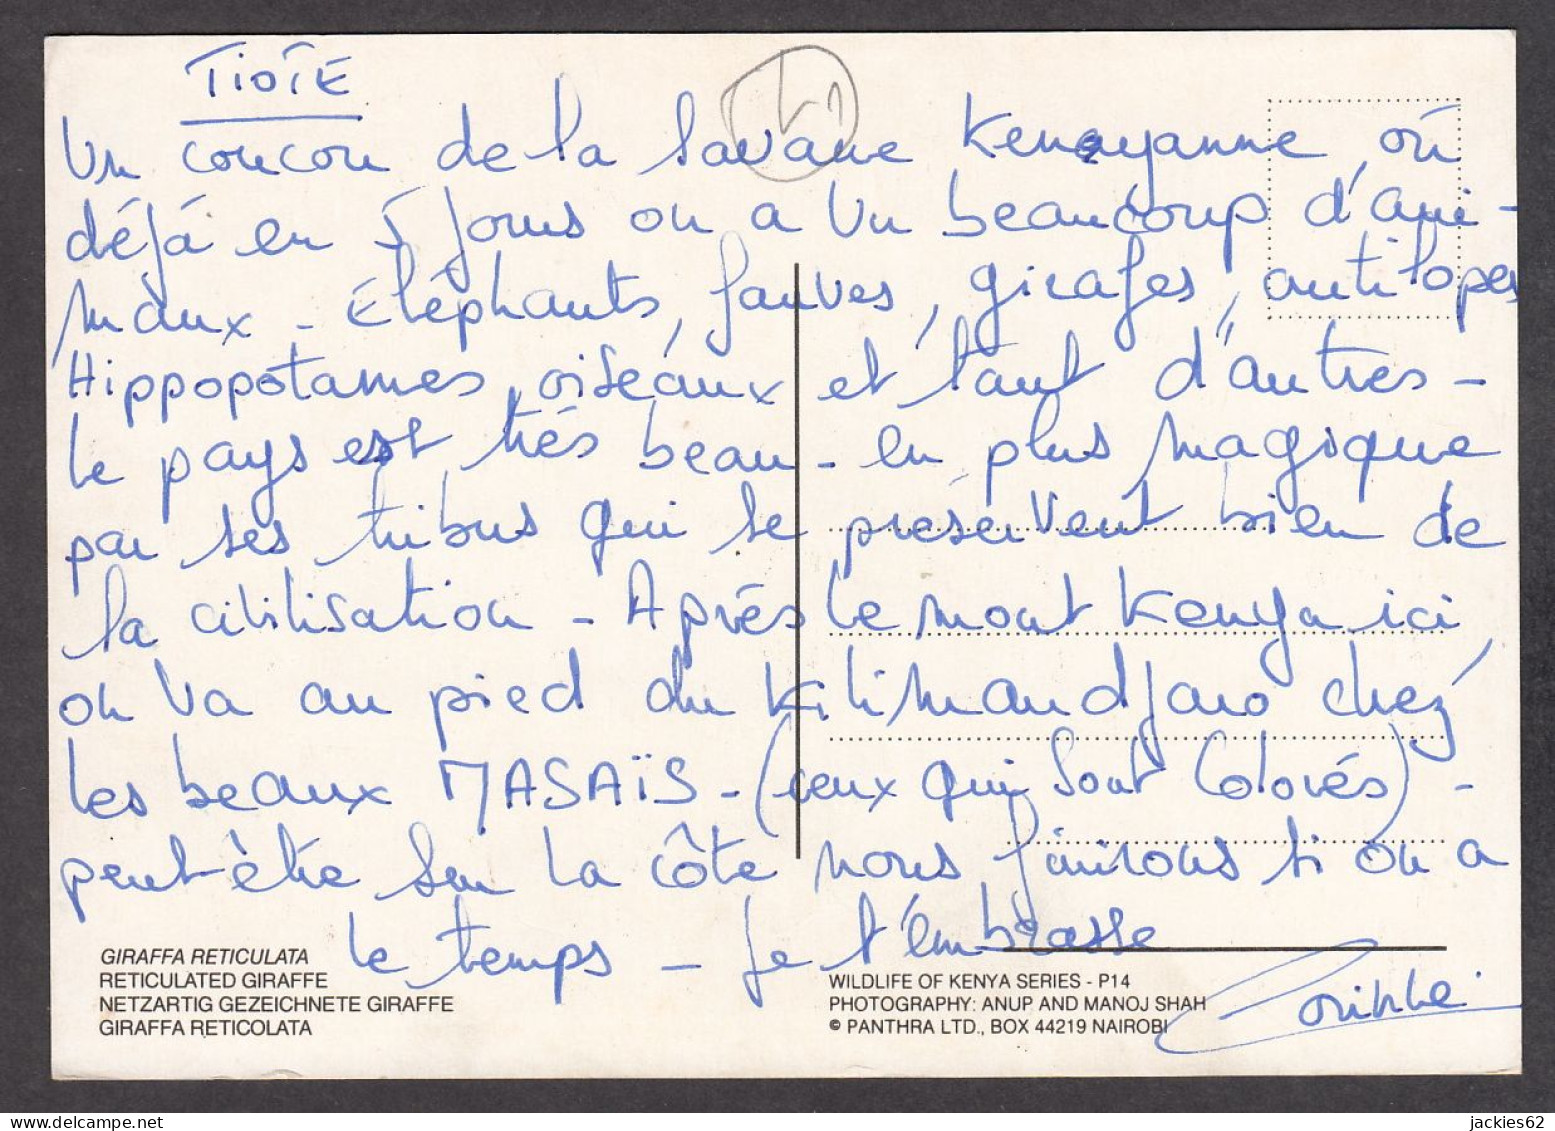 TIOTE
Un coucou de la savane Kenyanne, où
déjà en 5 jours on a vu beaucoup d'ani-
maux - Éléphants, fauves, girafes, antilopes
Hippopotames, oiseaux et tant d'autres -
Le pays est très beau - en plus magique
par ses tribus qui se préservent bien de
la civilisation - Après le mont Kenya ici,
on va au pied du Kilimandjaro chez
les beaux MASAÏS - (ceux qui sont colorés) -
peut-être sur la côte nous finirons si on a
le temps - Je t'embrasse
Corinne
GIRAFFA RETICULATA
RETICULATED GIRAFFE
NETZARTIG GEZEICHNETE GIRAFFE
GIRAFFA RETICOLATA
WILDLIFE OF KENYA SERIES - P14
PHOTOGRAPHY: ANUP AND MANOJ SHAH
© PANTHRA LTD., BOX 44219 NAIROBI
jackies62